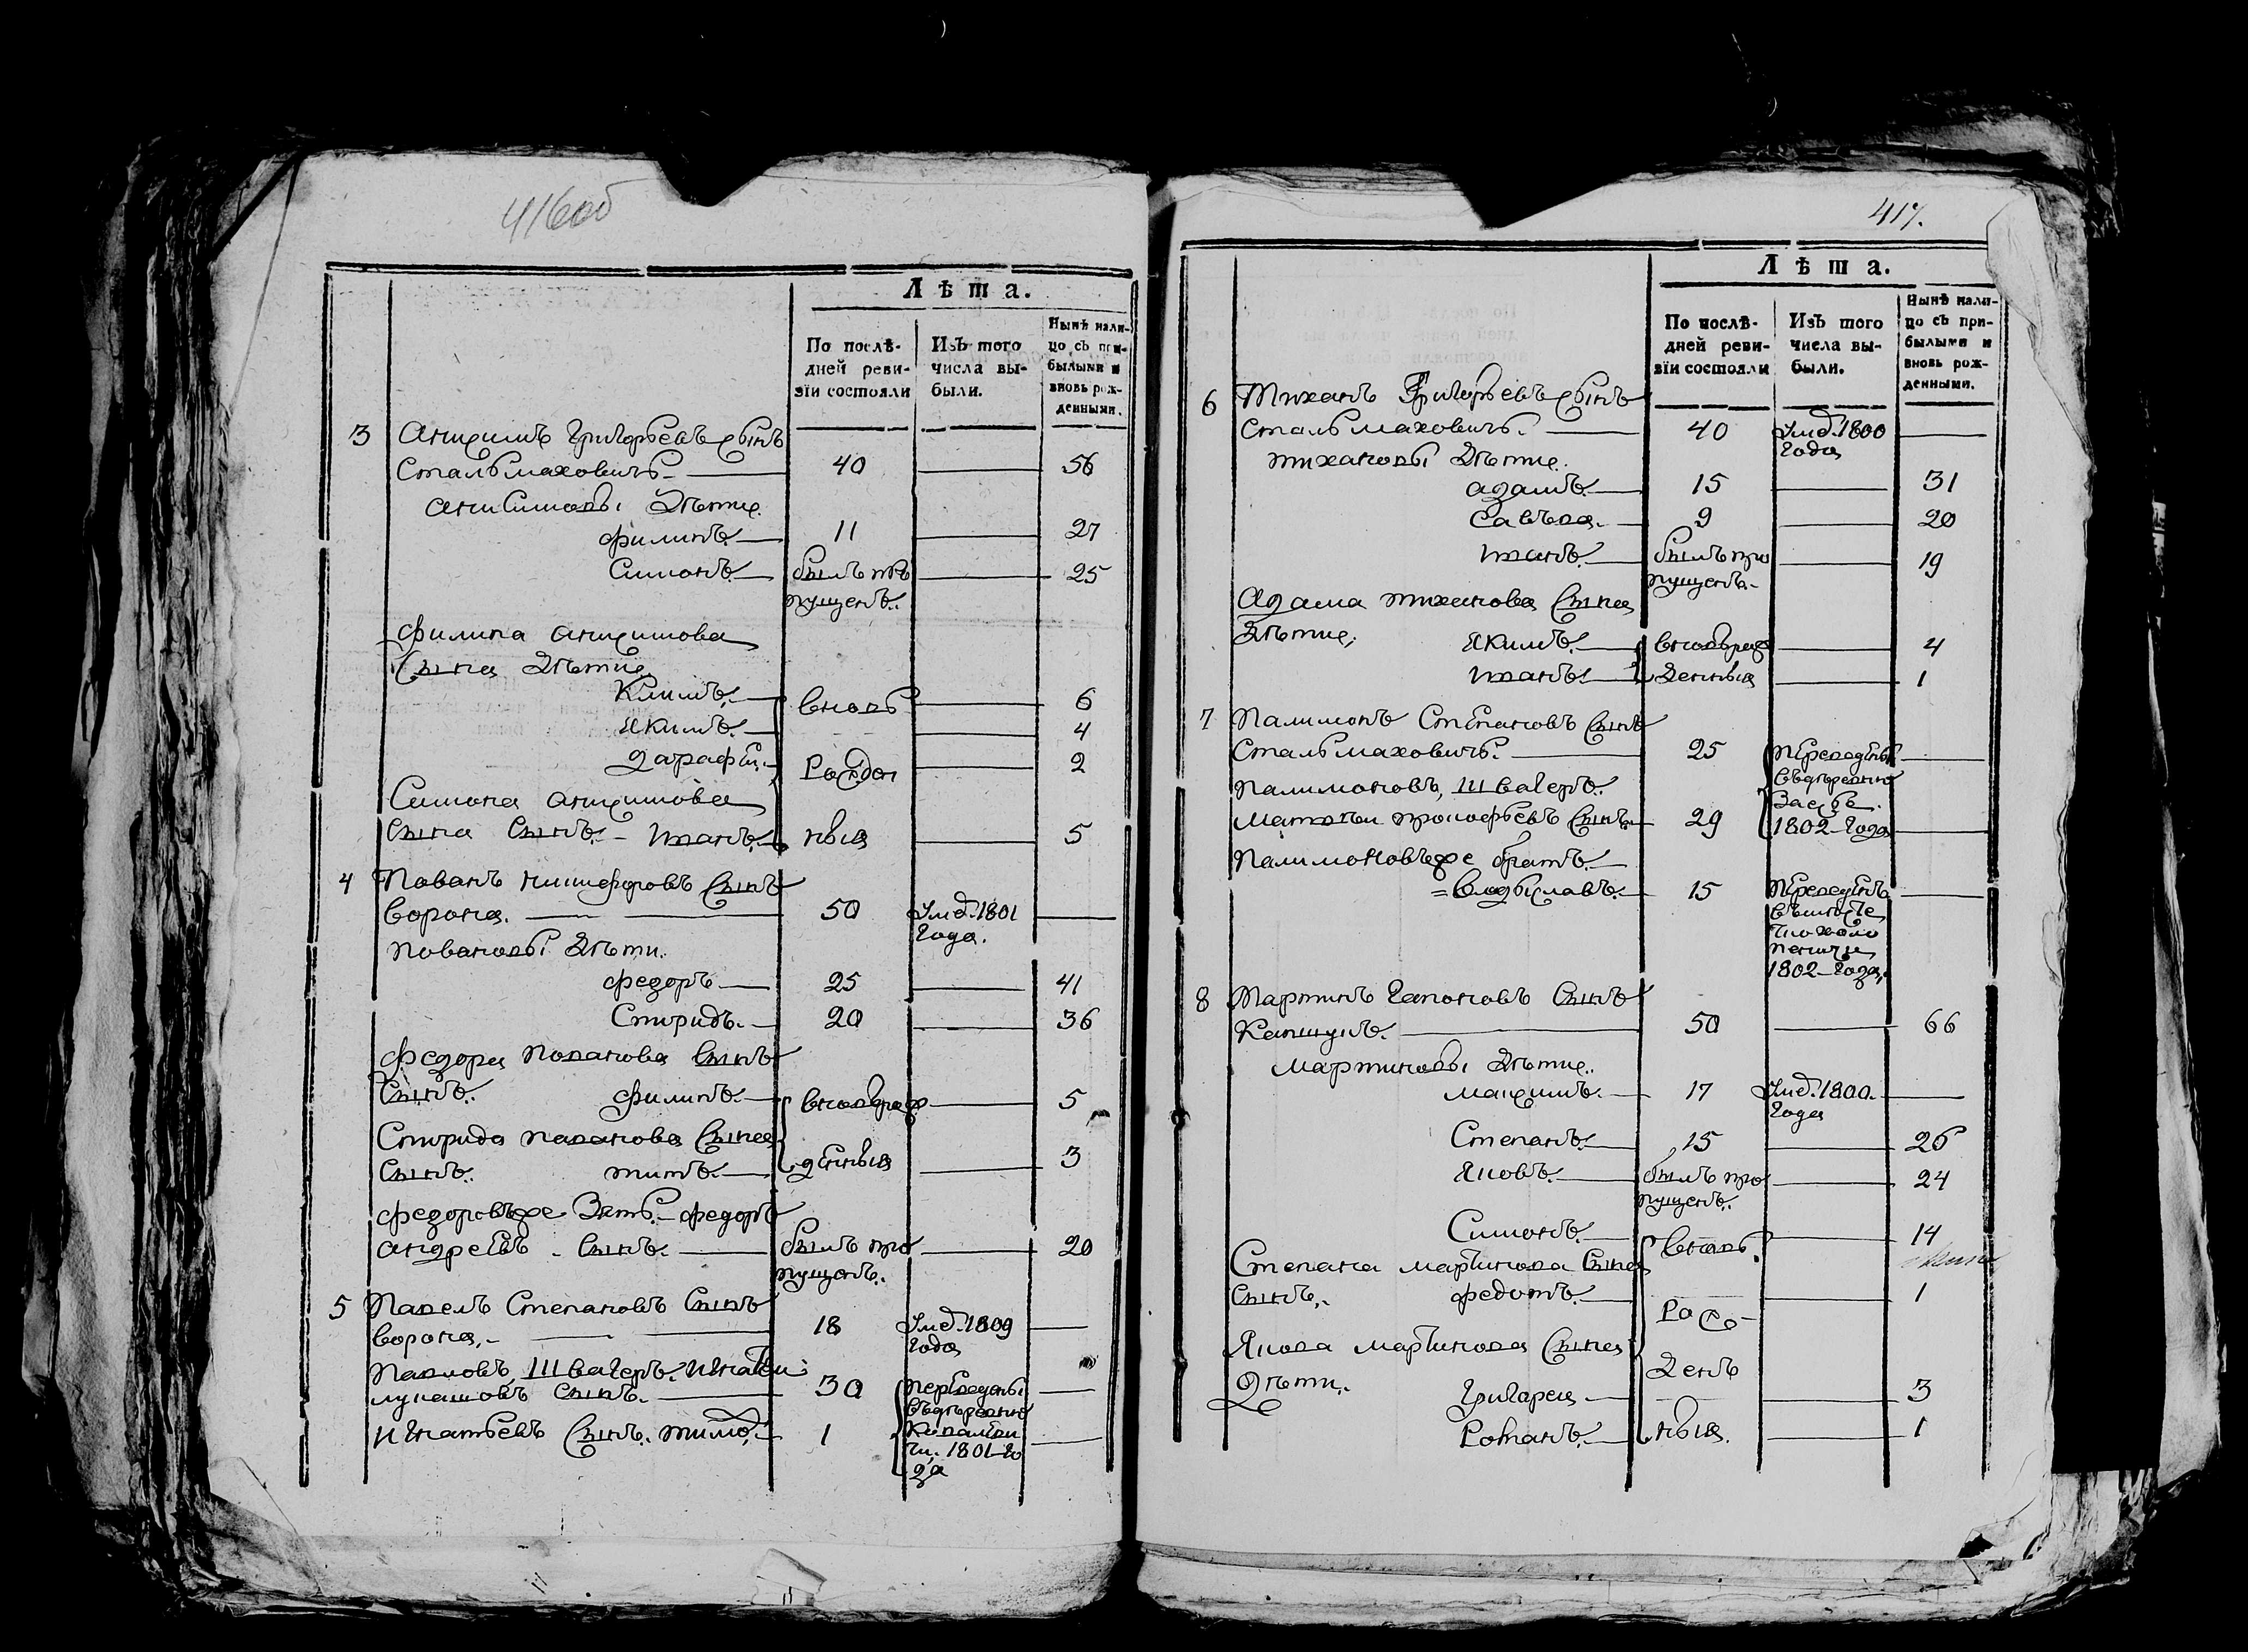 416об
Лѣта.
По послѣ-
дней реви-
зїи состояли
Изъ того
числа вы-
были.
Нынѣ нали-
цо съ при-
былыми и
вновь рож-
денными.
3 Григорьевъ сынъ
Стальмаховичъ. 40 56
Анисимовы дѣти
филипъ. 11 27
Симонъ. былъ про 25
пущенъ.
Филипа
сына дѣти
Климъ. вновь 6
Якимъ. 4
Рожден 2
Симона
сына сынъ. Иванъ. ныя 5
4 сынъ
ворона. 50 Умер. 1801
года.
дѣти.
федоръ 25 41
Спиридъ. 20 36
федора
сынъ. филипъ. вновьрож 5
Спирида сына
сынъ. титъ. денныя 3
федоровъже зять федоръ
андреевъ сынъ. былъ про 20
пущенъ.
5 Павелъ Степановъ сынъ
ворона. 18 Умер. 1809
года
Павловъ швагеръ игнатеи
лукашовъ сынъ. 30 переведены
въдѣревню
игнатьевъ сынъ. 1
1801 го
да
417.
Лѣта.
По послѣ-
дней реви-
зїи состояли
Изъ того
числа вы-
были.
Нынѣ нали-
цо съ при-
былыми и
вновь рож-
денными.
6 Тиханъ Григорьевъ сынъ
Стальмаховичъ. 40 Умер. 1800
года
тихановы дѣти.
адамъ. 15 31
Савъва. 9 20
иванъ. былъ про 19
пущенъ.
Адама тиханова сына
дѣти, Якимъ. вновьрож 4
иванъ. денныя 1
7 Палимонъ Степановъ сынъ
Стальмаховичъ. 25 переведены
въдѣревню
Палимоновъ, швагеръ.
прокофьевъ сынъ 29 1802 года
Палимоновъже братъ.
владыславъ. 15 переведенъ
1802 года,
8 Мартинъ Гапоновъ сынъ
50 66
мартиновы дѣти.
максимъ. 17 Умер. 1800.
года
Степанъ. 15 26
Яковъ. былъ про 24
пущенъ.
Симонъ. вновь 14
Степана мартинова сына
сынъ, федотъ. 1
Рож-
Якова мартинова сына
дѣти. денъ
Григареи 3
Романъ. ныя. 1